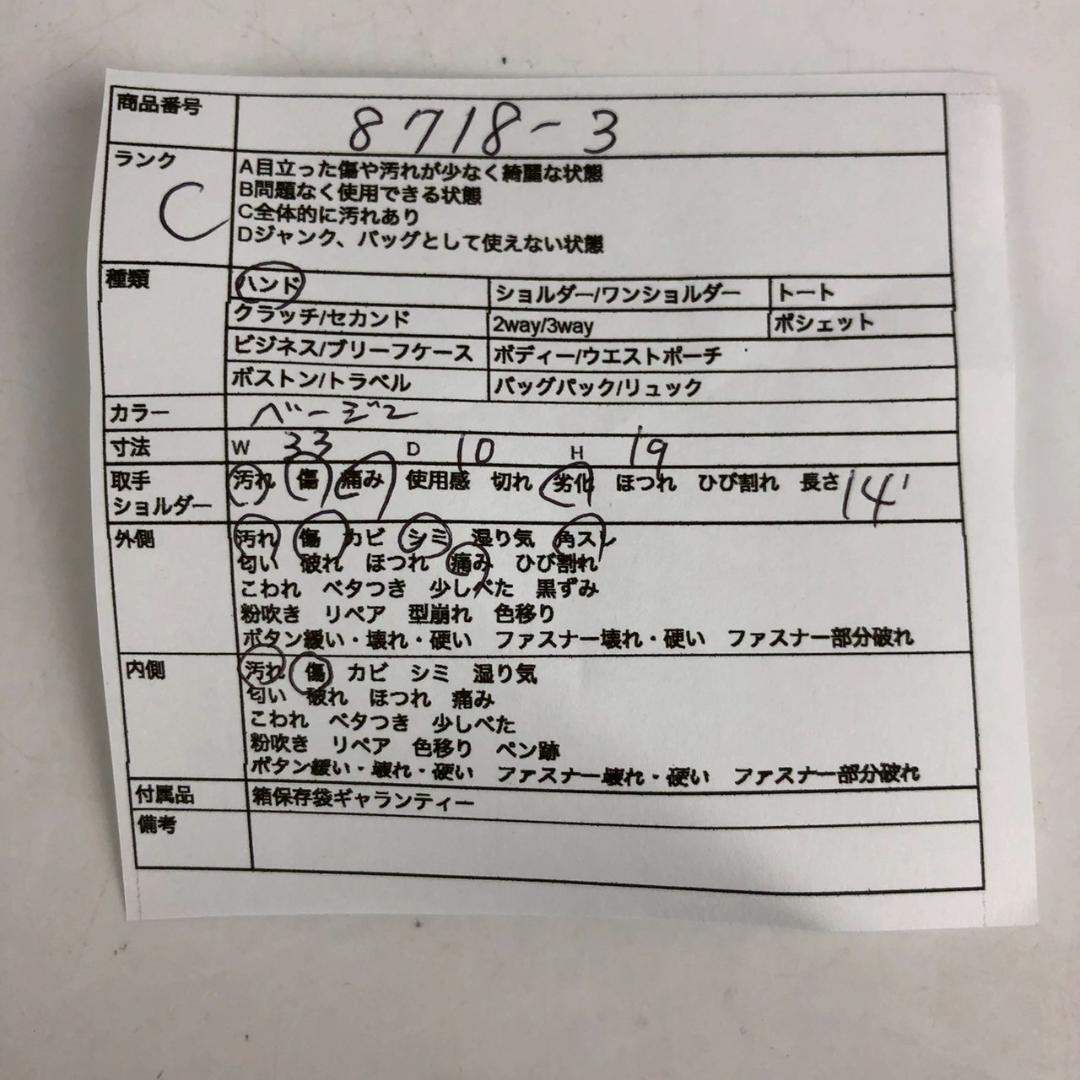 商品番号 8718-3
ランク C
A目立った傷や汚れが少なく綺麗な状態
B問題なく使用できる状態
C全体的に汚れあり
Dジャンク、バッグとして使えない状態
種類 ハンド ショルダー/ワンショルダー トート
クラッチ/セカンド 2way/3way ポシェット
ビジネス/ブリーフケース ボディー/ウエストポーチ
ボストン/トラベル バッグパック/リュック
カラー ベージュ
寸法 W 33 D 10 H 19
取手 汚れ 傷 痛み 使用感 切れ 劣化 ほつれ ひび割れ 長さ 14
ショルダー
外側 汚れ 傷 カビ シミ 湿り気 角スレ
匂い 破れ ほつれ 痛み ひび割れ
こわれ ベタつき 少しべた 黒ずみ
粉吹き リペア 型崩れ 色移り
ボタン緩い・壊れ・硬い ファスナー壊れ・硬い ファスナー部分破れ
内側 汚れ 傷 カビ シミ 湿り気
匂い 破れ ほつれ 痛み
こわれ ベタつき 少しべた
粉吹き リペア 色移り ペン跡
ボタン緩い・壊れ・硬い ファスナー壊れ・硬い ファスナー部分破れ
付属品 箱保存袋ギャランティー
備考